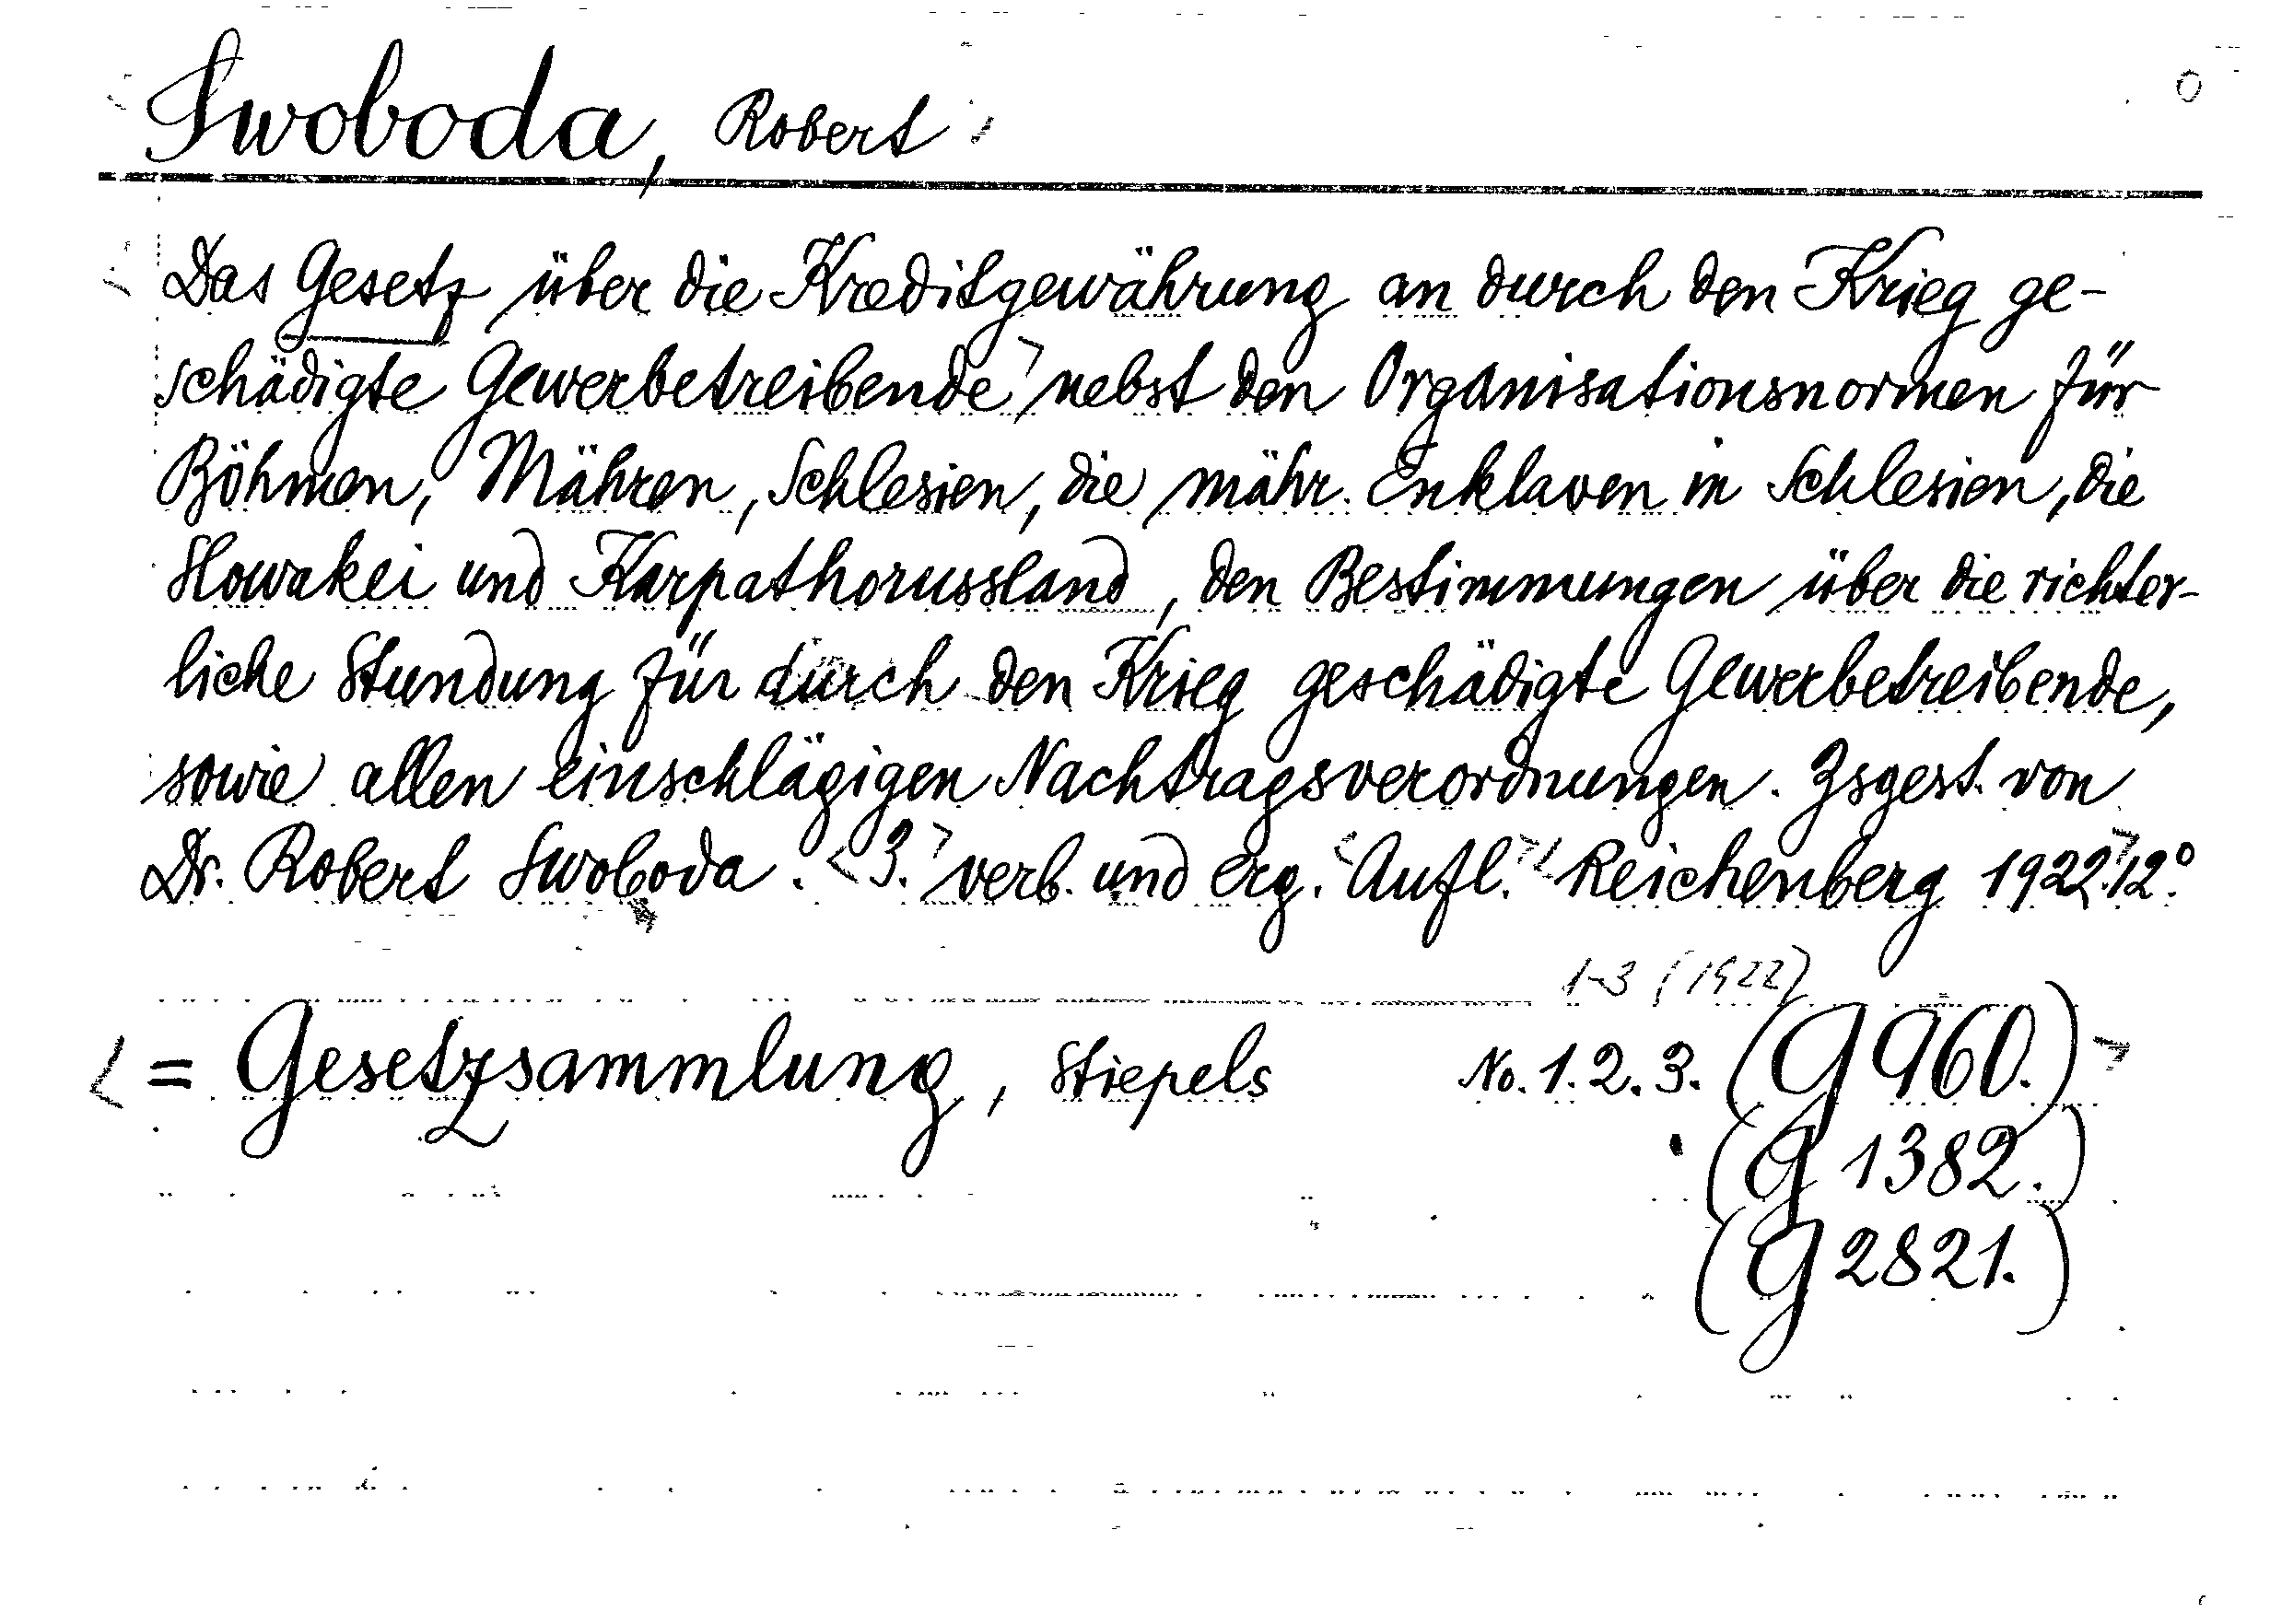 Swoboda, Robert
Das Gesetz über die Kreditgewährung an durch den Krieg ge-
schädigte Gewerbetreibende nebst den Organisationsnormen für
Böhmen, Mähren, Schlesien, die mähr. Enklaven in Schlesien, die
Slowakei und Karpathorussland, den Bestimmungen über die richter-
liche Stundung für durch den Krieg geschädigte Gewerbetreibende,
sowie allen einschlägigen Nachtragsverordnungen. Zsgest. von
Dr. Robert Swoboda. <3.> verb. und erg. <Aufl.> <Reichenberg 1922.> 12°.
1-3 (1922)
< = Gesetzsammlung, Stiepels No. 1. 2. 3. (G 960.) >
(G 1382.)
(G 2821.)